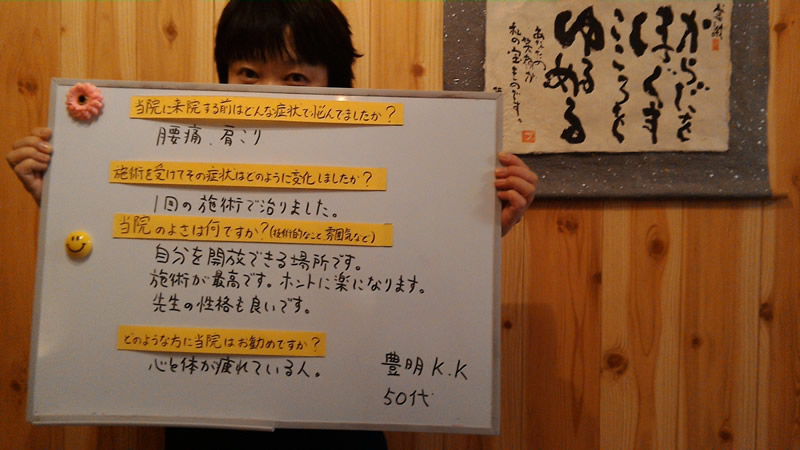 当院に来院する前はどんな症状で悩んでましたか?
腰痛、肩こり
施術を受けてその症状はどのように変化しましたか?
1回の施術で治りました。
当院のよさは何ですか?(技術的なこと 雰囲気など)
自分を開放できる場所です。
施術が最高です。ホントに楽になります。
先生の性格も良いです。
どのような方に当院はお勧めですか?
心と体が疲れている人。
豊明 K.K
50代
からだを
ほぐす
こころを
ゆるめる
あなたの
笑顔が
私の宝ものです。